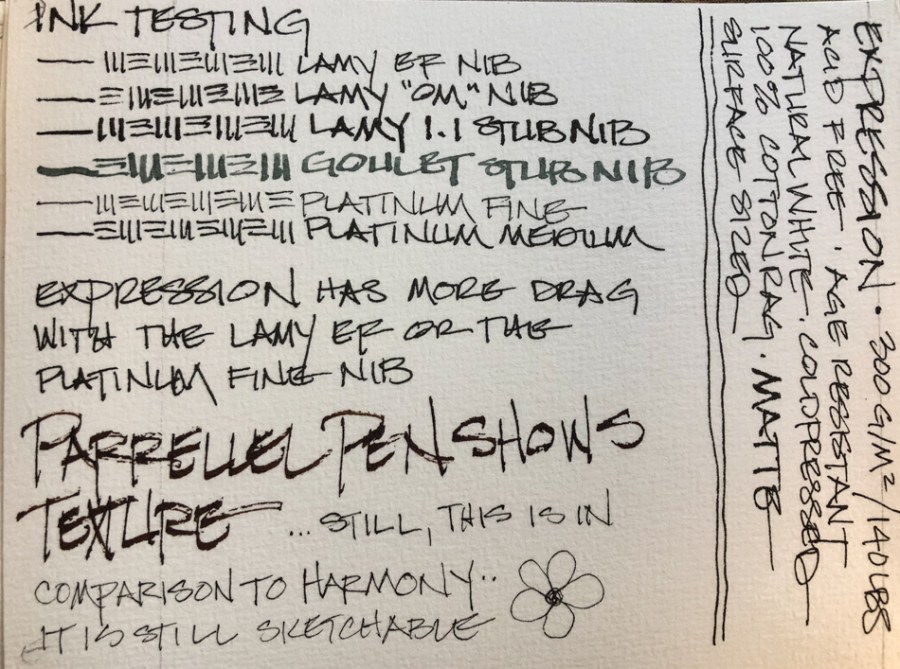 INK TESTING
LAMY EF NIB
LAMY "OM" NIB
LAMY 1.1 STUB NIB
GOULET STUB NIB
PLATINUM FINE
PLATINUM MEDIUM
EXPRESSION HAS MORE DRAG
WITH THE LAMY EF OR THE
PLATINUM FINE NIB
PARRELLEL PEN SHOWS
TEXTURE ... STILL, THIS IS IN
COMPARISON TO HARMONY..
IT IS STILL SKETCHABLE
EXPRESSION · 300 G/M² / 140 LBS
ACID FREE · AGE RESISTANT
NATURAL WHITE · COLD PRESSED
100% COTTON RAG · MATTE
SURFACE SIZED